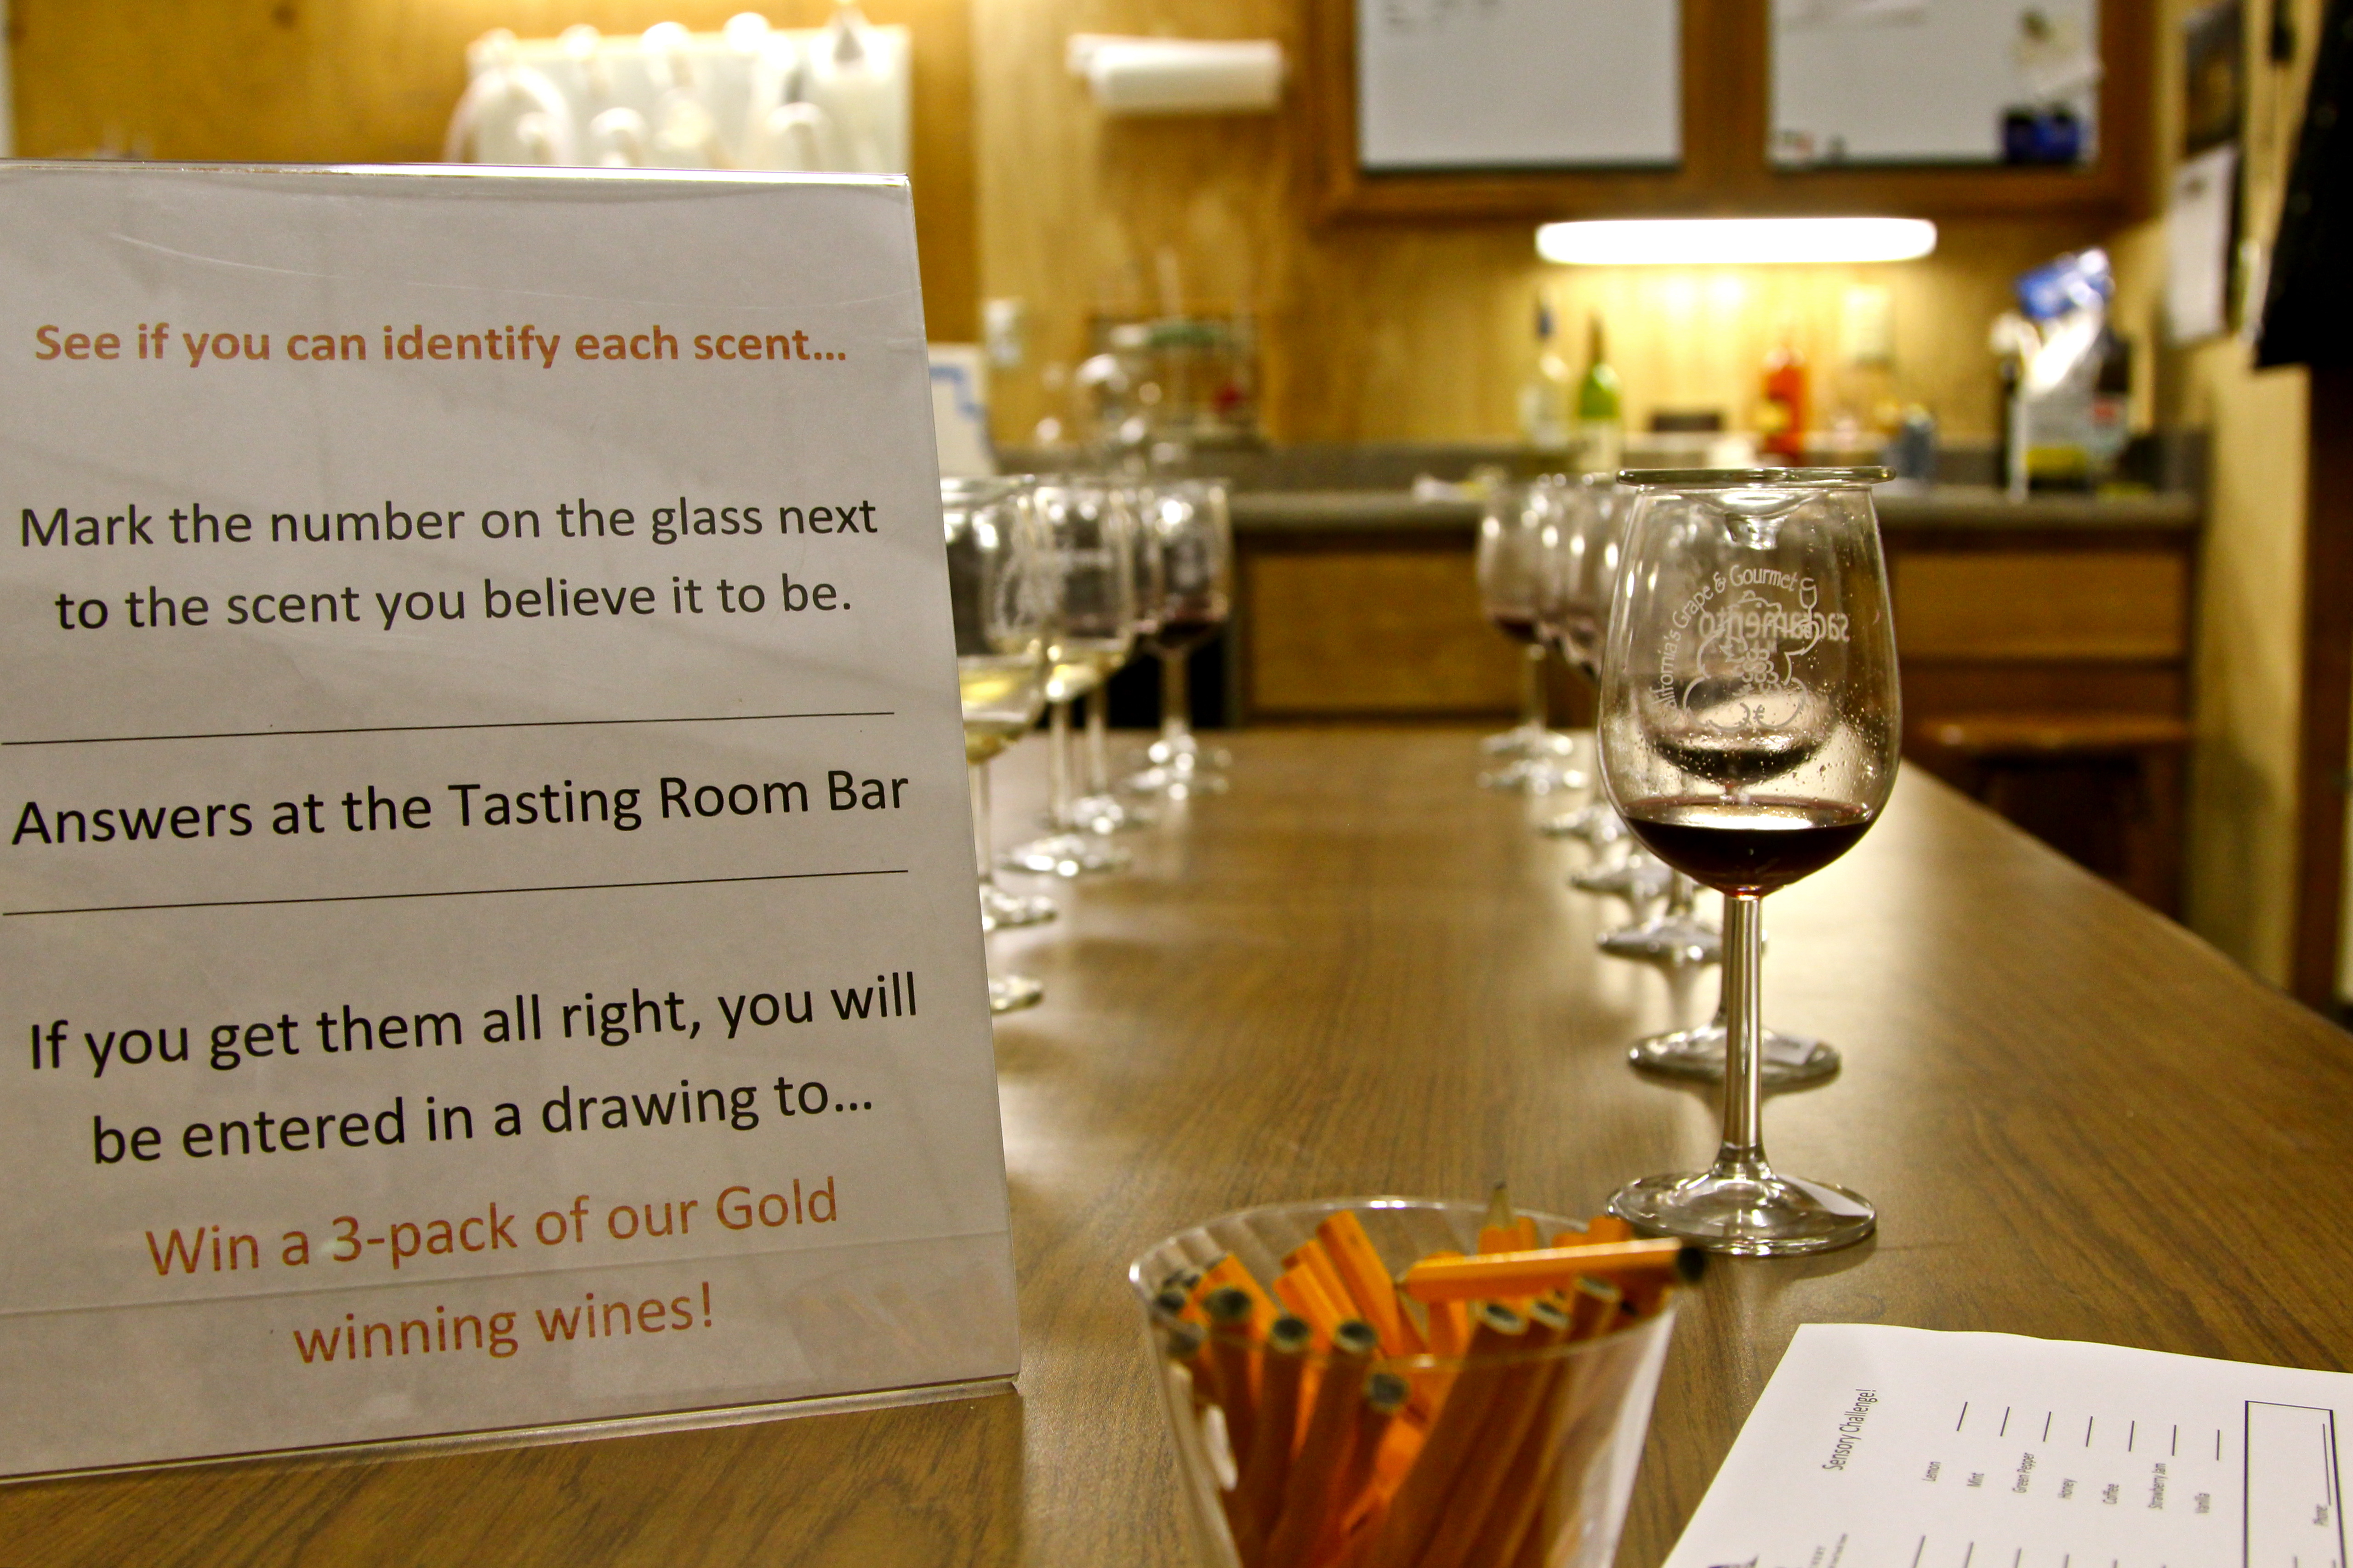 See if you can identify each scent...
Mark the number on the glass next
to the scent you believe it to be.
Answers at the Tasting Room Bar
If you get them all right, you will
be entered in a drawing to...
Win a 3-pack of our Gold
winning wines!
Grape & Gourmet
sacramento
Sensory Challenge!
Lemon
Mint
Green Pepper
Honey
Coffee
Strawberry Jam
Vanilla
Phone: